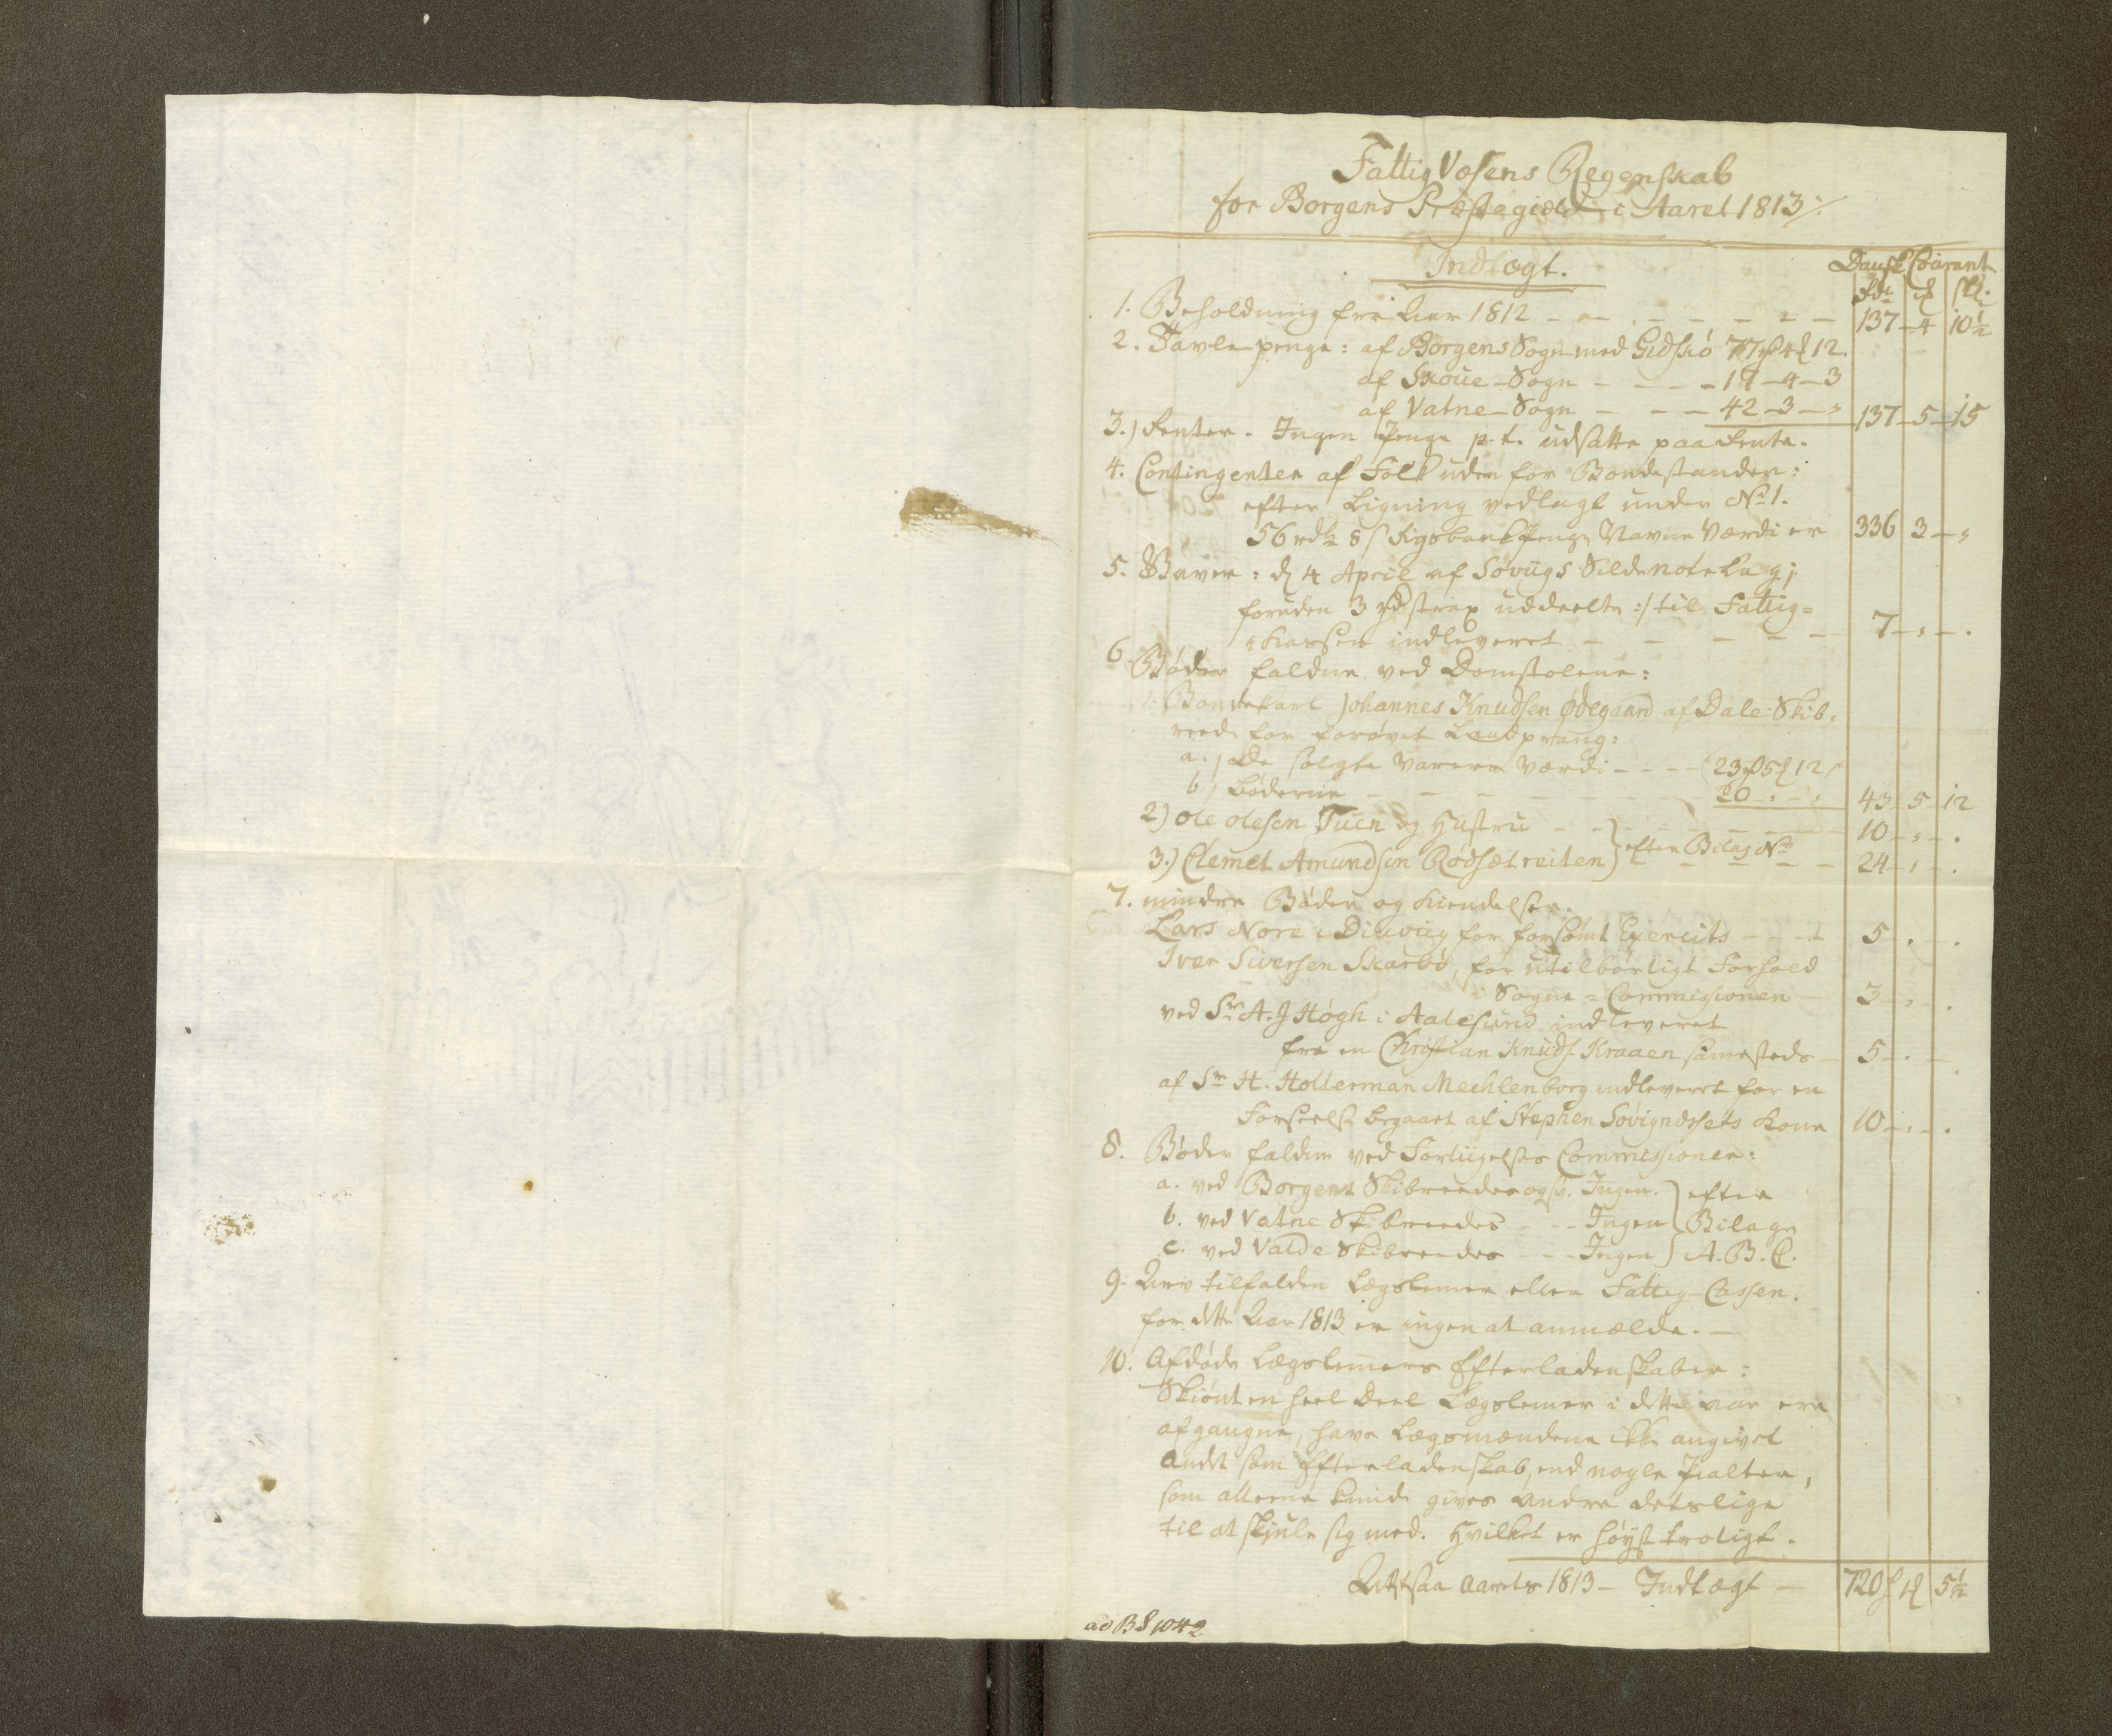 Fattig Væsens Regenskab
for Borgens Præstegield i Aaret 1813 ⁒
Indtægt.
Dansk Courant
rdr ₰ sk.
1. Beholdning fra Aar 1812 - - - - - - - 137 - 4 10½
2. Tavle penge: af Borgens Sogn med Gidskø 77 4 12.
af Skoue - Sogn - - - - 17 - 4 - 3
af Vatne - Sogn - - - 42 - 3 - " 137 - 5 - 15
3.) Renter. Ingen Penge p. t. udsatte paa Rente.
4. Contingenter af Folk uden for Bondestanden:
efter Ligning vedlagt under No 1.
56 rdr 8 s Rigsbankpenge Navne Værdi er 336 3 - "
5. Gaver: d 4 April af Søvigs Sildenotelag;
foruden 3 rd strax uddeelte :/ til Fattig=
=kassen indleveret - - - - - 7 - " - .
6 Bøder faldne ved Domstolene:
1. Bondekarl Johannes Knudsen Ødegaard af Dale Skib-
reede for forøvet Landprang:
a., De solgte Varers Værdi - - - - 23 5 12
b., Bøderne - - - - - - 20 - " - " 43 - 5 - 12
2) Ole Olesen Tuen og Hustru - - - - - - 10 - " - .
3.) Clemet Amundsen Rødsætreiten } efter Bilag No - - - - - 24 - " - .
7. mindre Bøder og Kiendelser.
Lars Nore i Dinvig for forsømt Exercits - - - - 5 - . - .
Iver Siversen Skarbø, for utilbørligt Forhold
i Sogne = Commissionen - 3 - " - .
ved Sr A. J Høgh i Aalesund indleveret
fra en Christian Knuds. Kraaen samesteds - 5 - . -
af Sr H. Holterman Mechlenborg indleveret for en
Forseelse begaaet af Stephen Søvigndssets Kone 10 - . - .
8. Bøder faldne ved Forligelses Commissioner:
a. ved Borgens Skibreedes ogsv. Ingen. } efter
b. ved Vatne Skibreedes - - - Ingen } Bilage
c. ved Valde Skibreedes - - - Ingen } A. B. C.
9. Arv tilfalden Lægslemer eller Fattig-Cassen.
for dette Aar 1813 er ingen at anmælde. -
10. Afdøde Lægslemers Efterladenskaber:
Skiønt en heel Deel Lægslemer i dette Aar ere
afgangne, have Lægsmændene ikke angivet
Andet som Efterladenskab, end nogle Pialter,
som alleene kunde gives Andre deslige
til at skjule sig med. Hvilket er høyst troligt.
Altsaa Aarets 1813 - Indtægt - 720 4 5½
ad B 8 1042